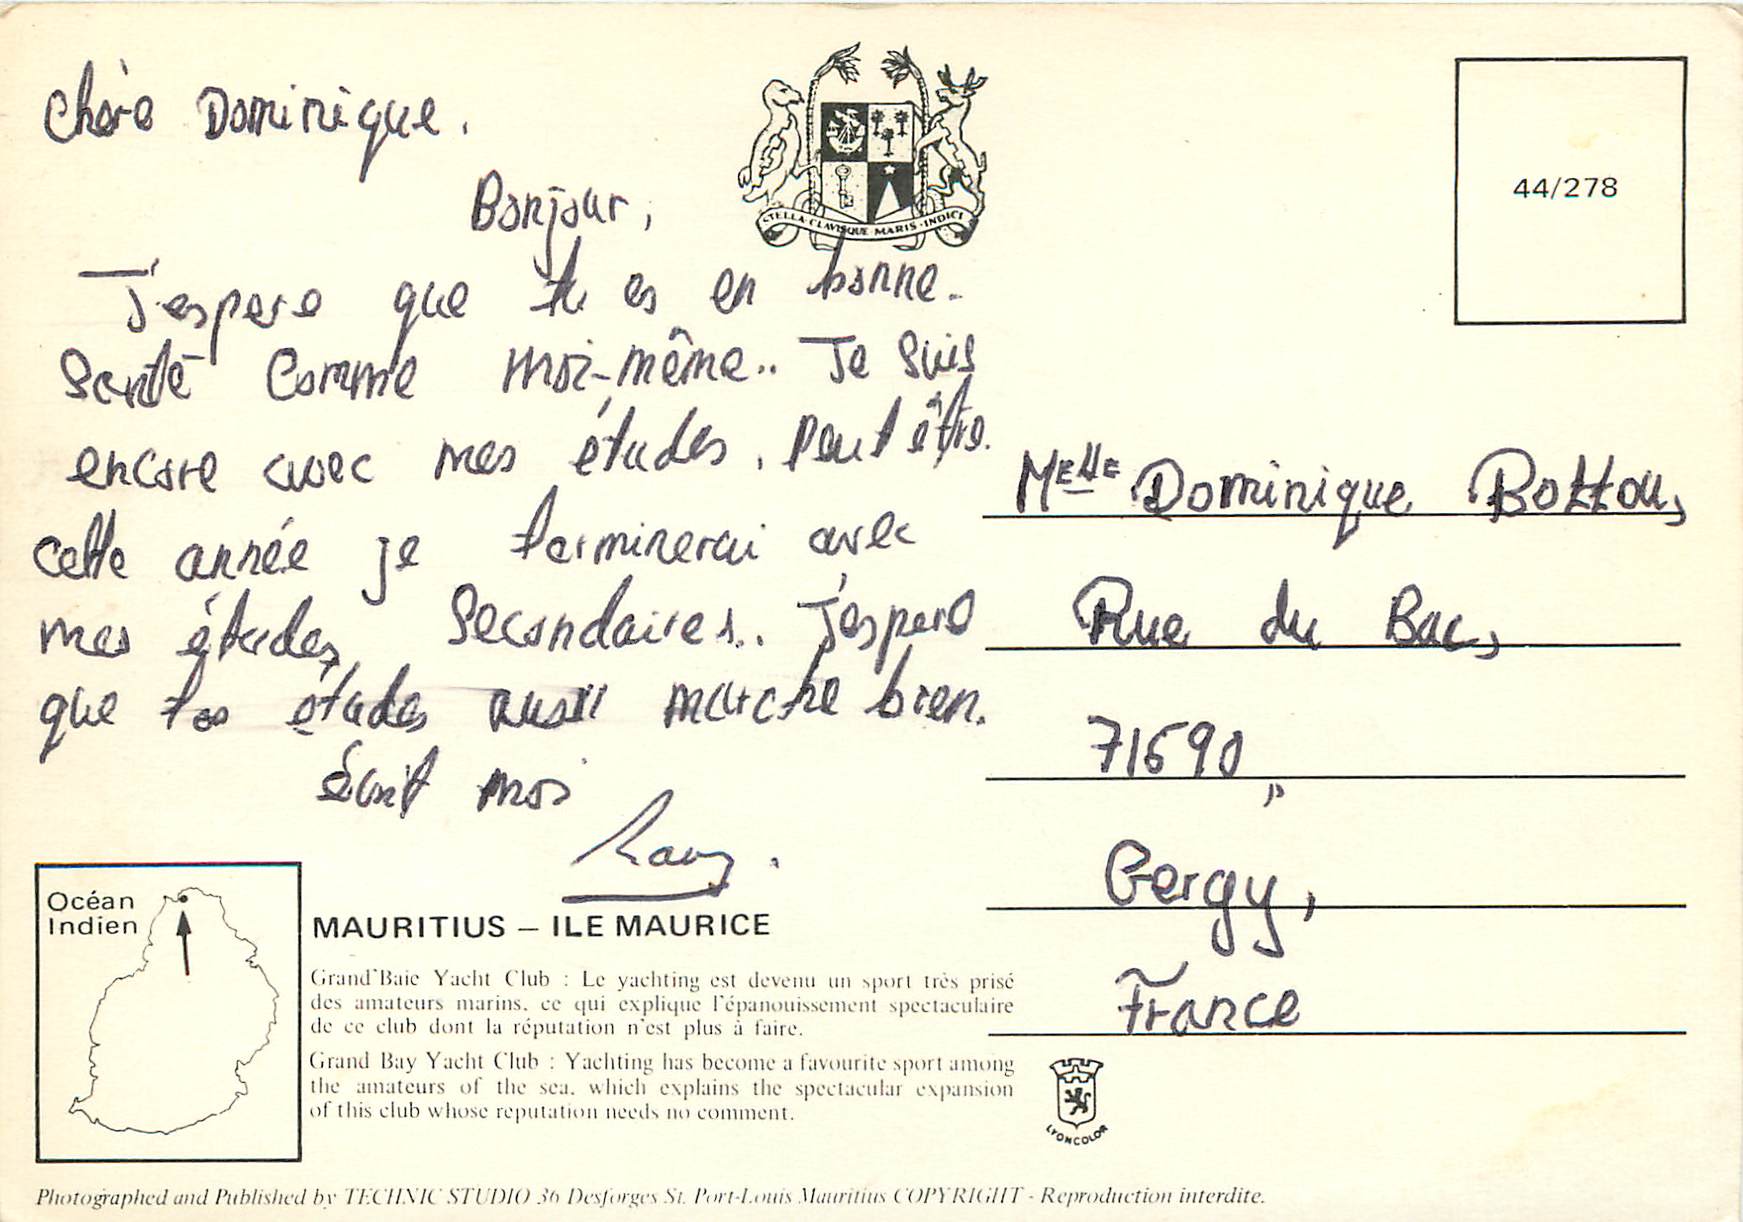 Chère Dominique.
Bonjour,
J'espere que tu es en bonne.
Santé Comme moi-même.. Je suis
encore avec mes études. Peut être.
cette année je terminerai avec
mes études Secondaires.. J'espere
que tes études aussi marche bien.
écrit moi
STELLA·CLAVISQUE·MARIS·INDICI
44/278
Melle Dominique Bottou,
Rue du Bac,
71690,
Gergy,
France
Océan
Indien
MAURITIUS – ILE MAURICE
Grand'Baie Yacht Club : Le yachting est devenu un sport très prisé
des amateurs marins, ce qui explique l'épanouissement spectaculaire
de ce club dont la réputation n'est plus à faire.
Grand Bay Yacht Club : Yachting has become a favourite sport among
the amateurs of the sea, which explains the spectacular expansion
of this club whose reputation needs no comment.
LYONCOLOR
Photographed and Published by TECHNIC STUDIO 36 Desforges St. Port-Louis Mauritius COPYRIGHT - Reproduction interdite.